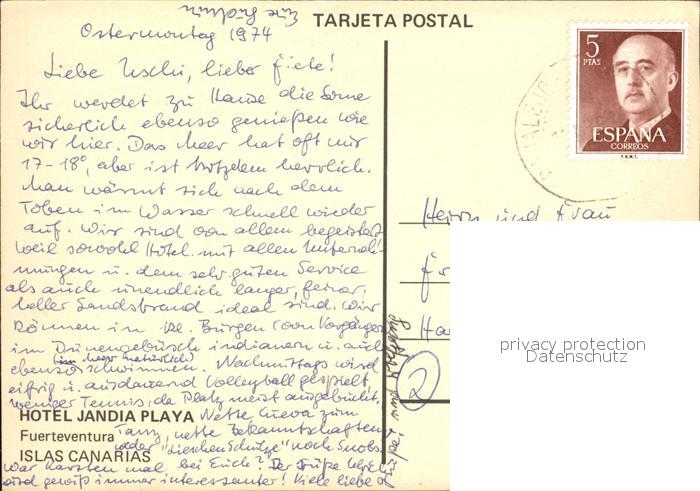 TARJETA POSTAL
Ostermontag 1974
Liebe Uschi, lieber Fiete!
Ihr werdet zu Hause die Sonne
sicherlich ebenso genießen wie
wir hier. Das Meer hat oft nur
17-18°, aber ist trotzdem herrlich.
Man wärmt sich nach dem
Toben im Wasser schnell wieder
auf. Wir sind von allem begeistert
weil sowohl Hotel mit allen
u. dem sehr guten Service
als auch unendlich langer, feiner,
heller Sandstrand ideal sind. Wir
können in kl. Burgen (von Vorgängern
im Dünengebüsch indianern u. auch
(im Meer natürlich)
ebenso schwimmen. Nachmittags wird
eifrig u. ausdauernd Volleyball gespielt,
weniger Tennis, da Platz meist ausgebucht.
HOTEL JANDIA PLAYA Nette Cueva zum
Fuerteventura Tanz, nette Bekanntschaften
ISLAS CANARIAS weder noch Snobs.
War Karsten mal bei Euch? Der
wird gewiß immer interessanter! Viele liebe
5
PTAS
ESPAÑA
CORREOS
F.N.M.T.
Herrn und Frau
2
privacy protection
Datenschutz